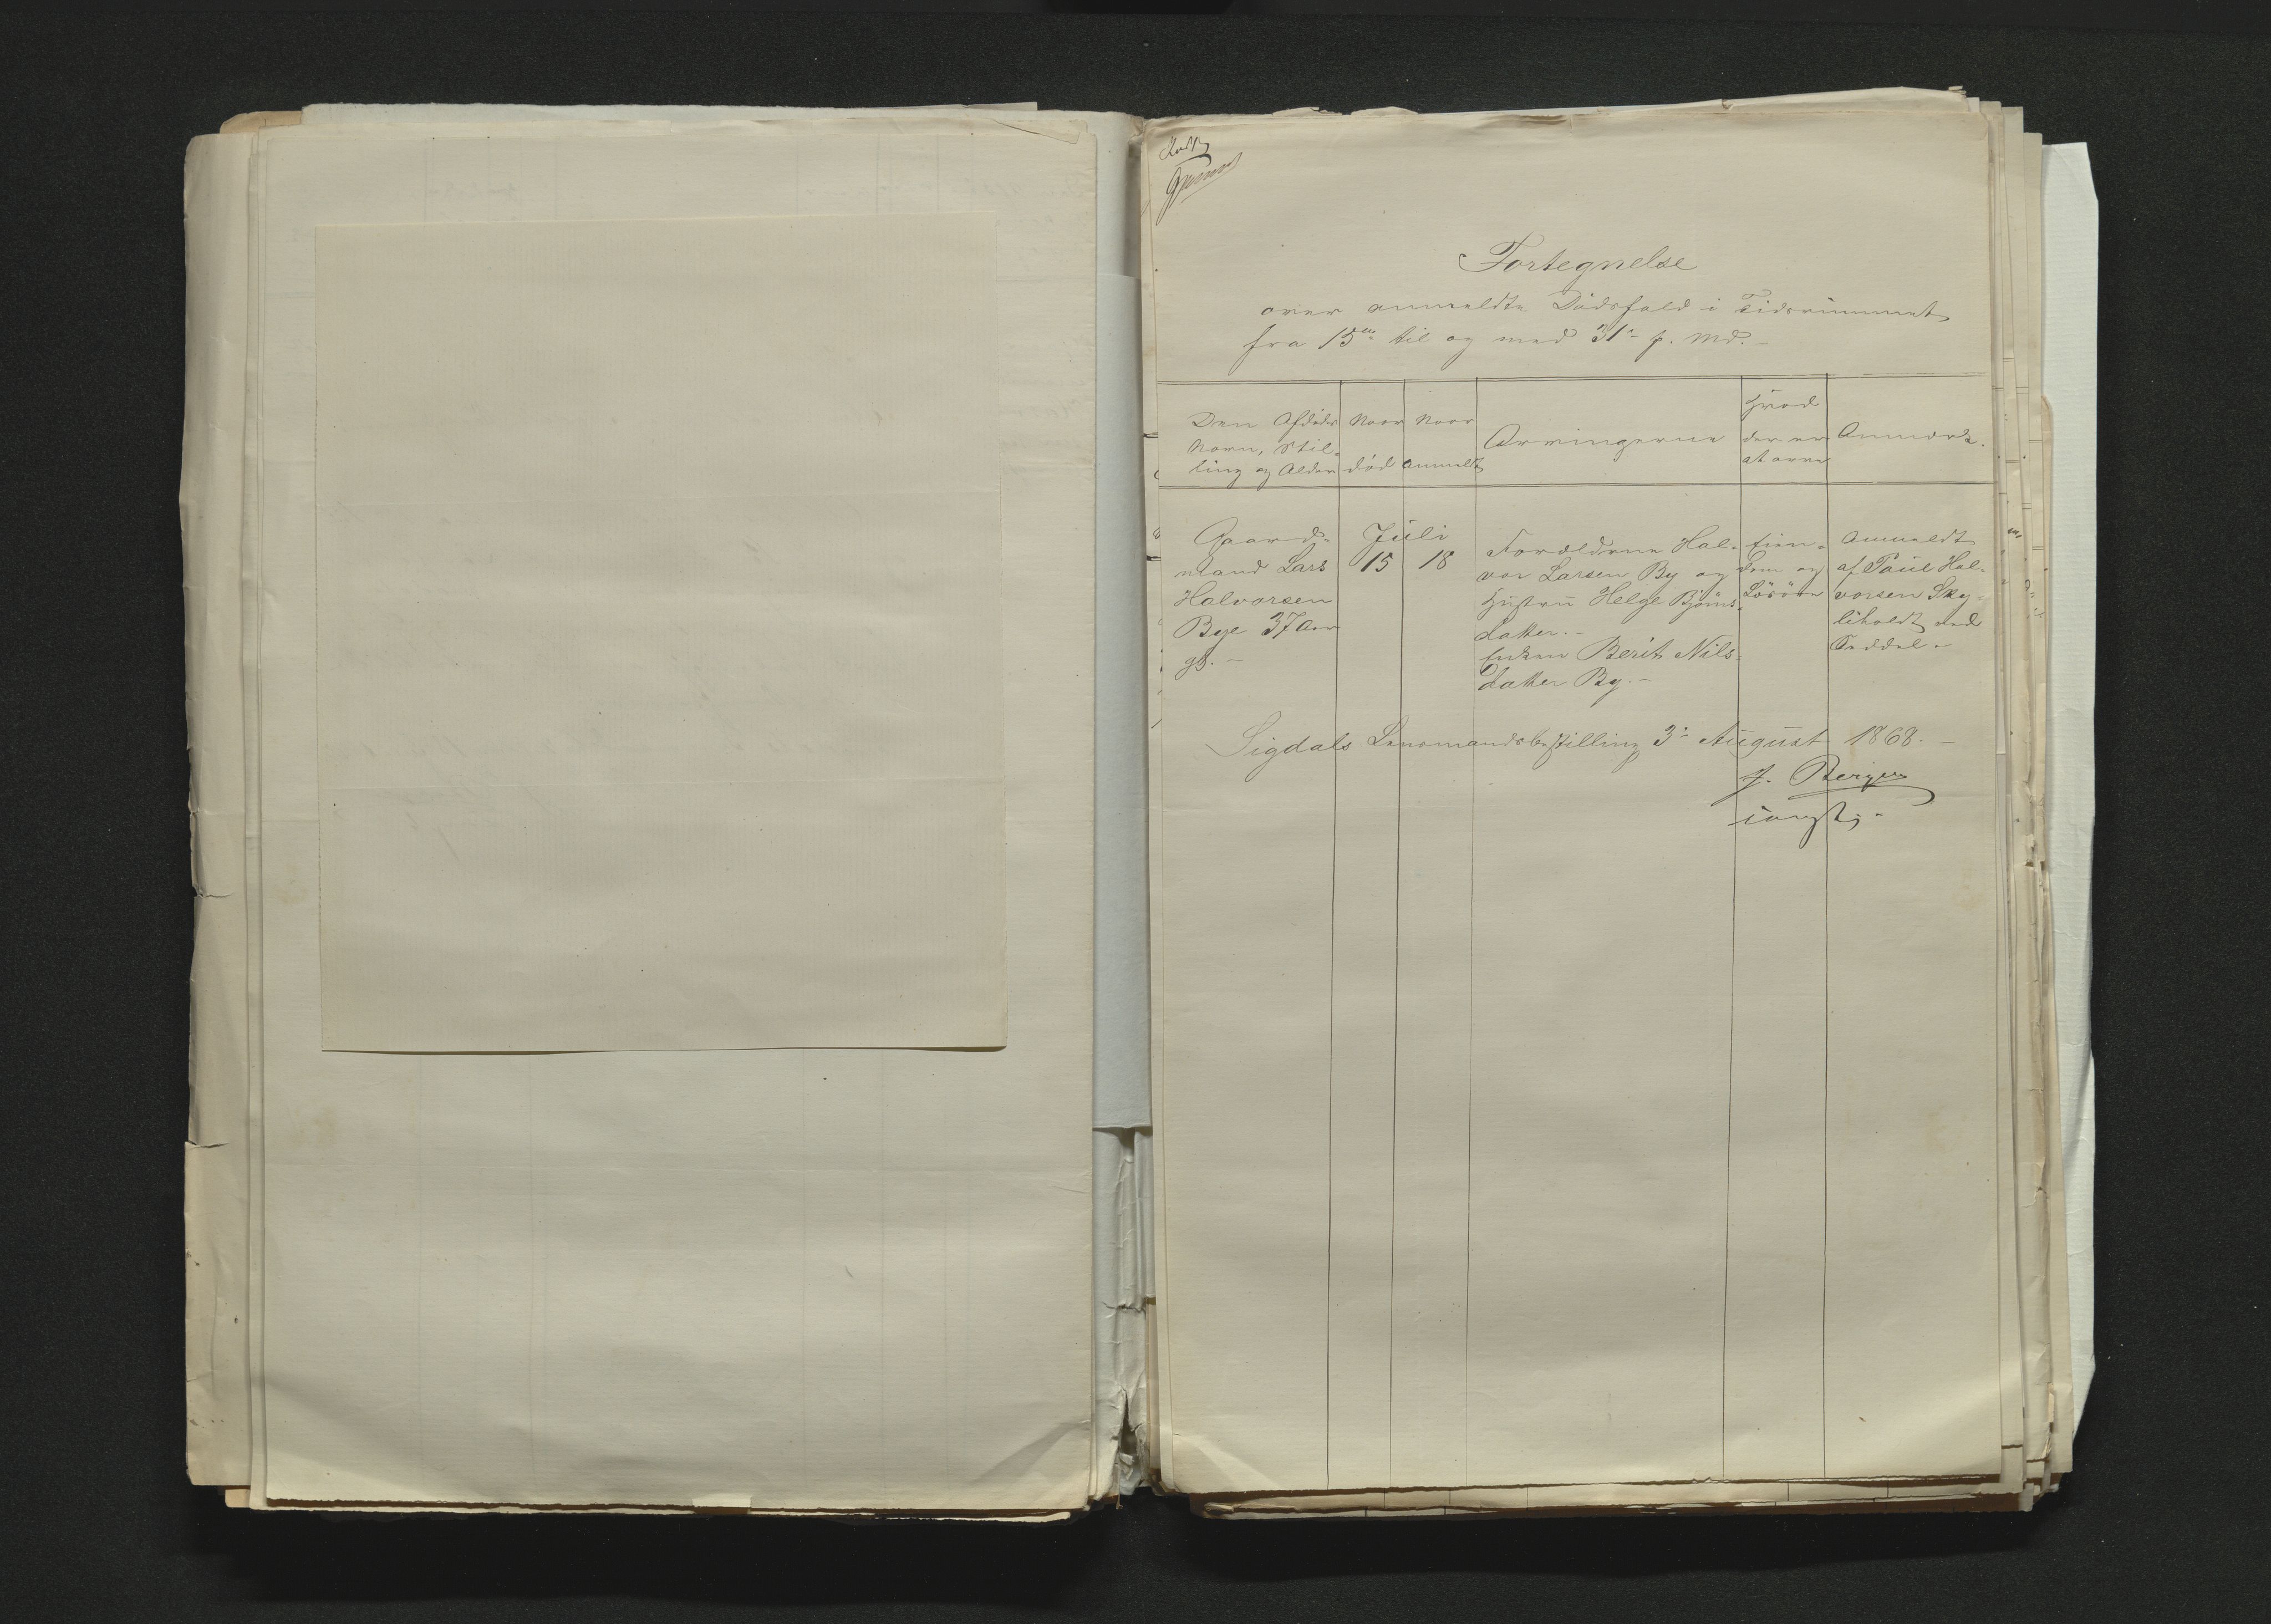 Fortegnelse
over anmeldte Dödsfald i Tidsrummet
fra 15de til og med 31- p. Md. -
Den Afdödes Navn, Stil-
ling og Alder
Naar död
Naar anmeldt
Arvingerne
Hvad
der er
at arve
Anmærk.
Gaard-
mand Lars
Halvorsen
Bye 37 Aar
gl. -
Juli
15 18
Forældrene Hal-
vor Larsen By og
Hustru Helge Björns-
datter. -
Enken Berit Nils-
datter By. -
Eien-
dom og
Lösöre
Anmeldt
af Paul Hal-
vorsen Sky-
ved
Seddel. -
Sigdals Lensmandsbestilling 3- August 1868. -
J. Berger